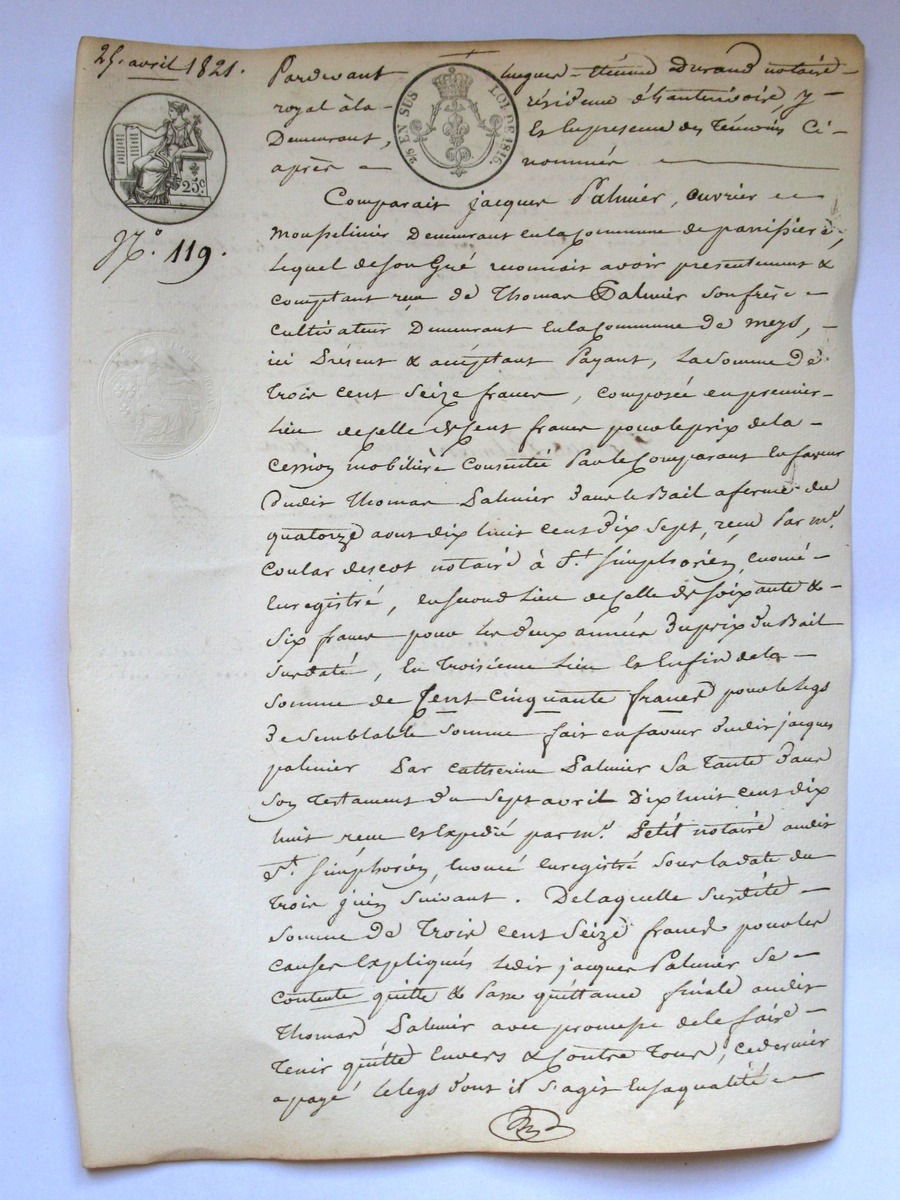 25. avril 1821.
Pardevant hugues-étienne Durand notaire
royal à la résidence de hanterivoire y
Demeurant, Et En presence des Témoins Ci-
après nommés
25 EN SUS LOI DE 1816.
25c
N.o 119.
Comparait jacques Palmier, ouvrier en
mousseliner Demeurant en la Commune de panissière,
Lequel de son Gré reconnait avoir présentement &
comptant reçu de Thomas Palmier son frère
cultivateur Demeurant En la Commune de meys,
ici Présent & acceptant Payant, La Somme De
Trois cent Seize francs, composée en premier
lieu de Celle de Cent francs pour le prix de la
cession mobilière Consentie Par le Comparant En faveur
Dudit Thomas Palmier Dans le Bail a ferme du
quatorze aout dix huit cent Dix Sept, reçu Par me.
Coular descot notaire à St. Simphorien, enoncé
Enregistré, en second Lieu de Celle de soixante &
Six francs pour les deux années Du prix du Bail
Susdaté, En Troisieme Lieu Et Enfin de la
Somme de Cent Cinquante francs pour le legs
De Semblable Somme fait en faveur dudit jacques
palmier Par Catherine Palmier Sa Tante Dans
Son Testament du Sept avril Dix huit cent dix
huit reçu Et Expedié par me. Petit notaire audit
St. Simphorien, Enoncé Enregistré Sous la date du
Trois juin Suivant. De laquelle Susdite
Somme De Trois cent Seize francs pour les
causes Expliqués Ledit jacques Palmier Se
Contente quitte & Passe quittance finale audit
Thomas Palmier avec promesse de le faire
Tenir quitte Envers & Contre Tous, ce dernier
a payé Le legs dont il S'agit En sa qualité